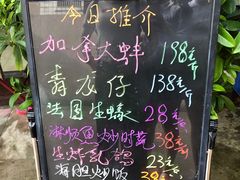 今日推介
加拿大蚌 198元/斤
青龙仔 138元/斤
法国生蚝 28元
炒时蔬 38元
生炸乳鸽 23元
海胆炒饭 38元